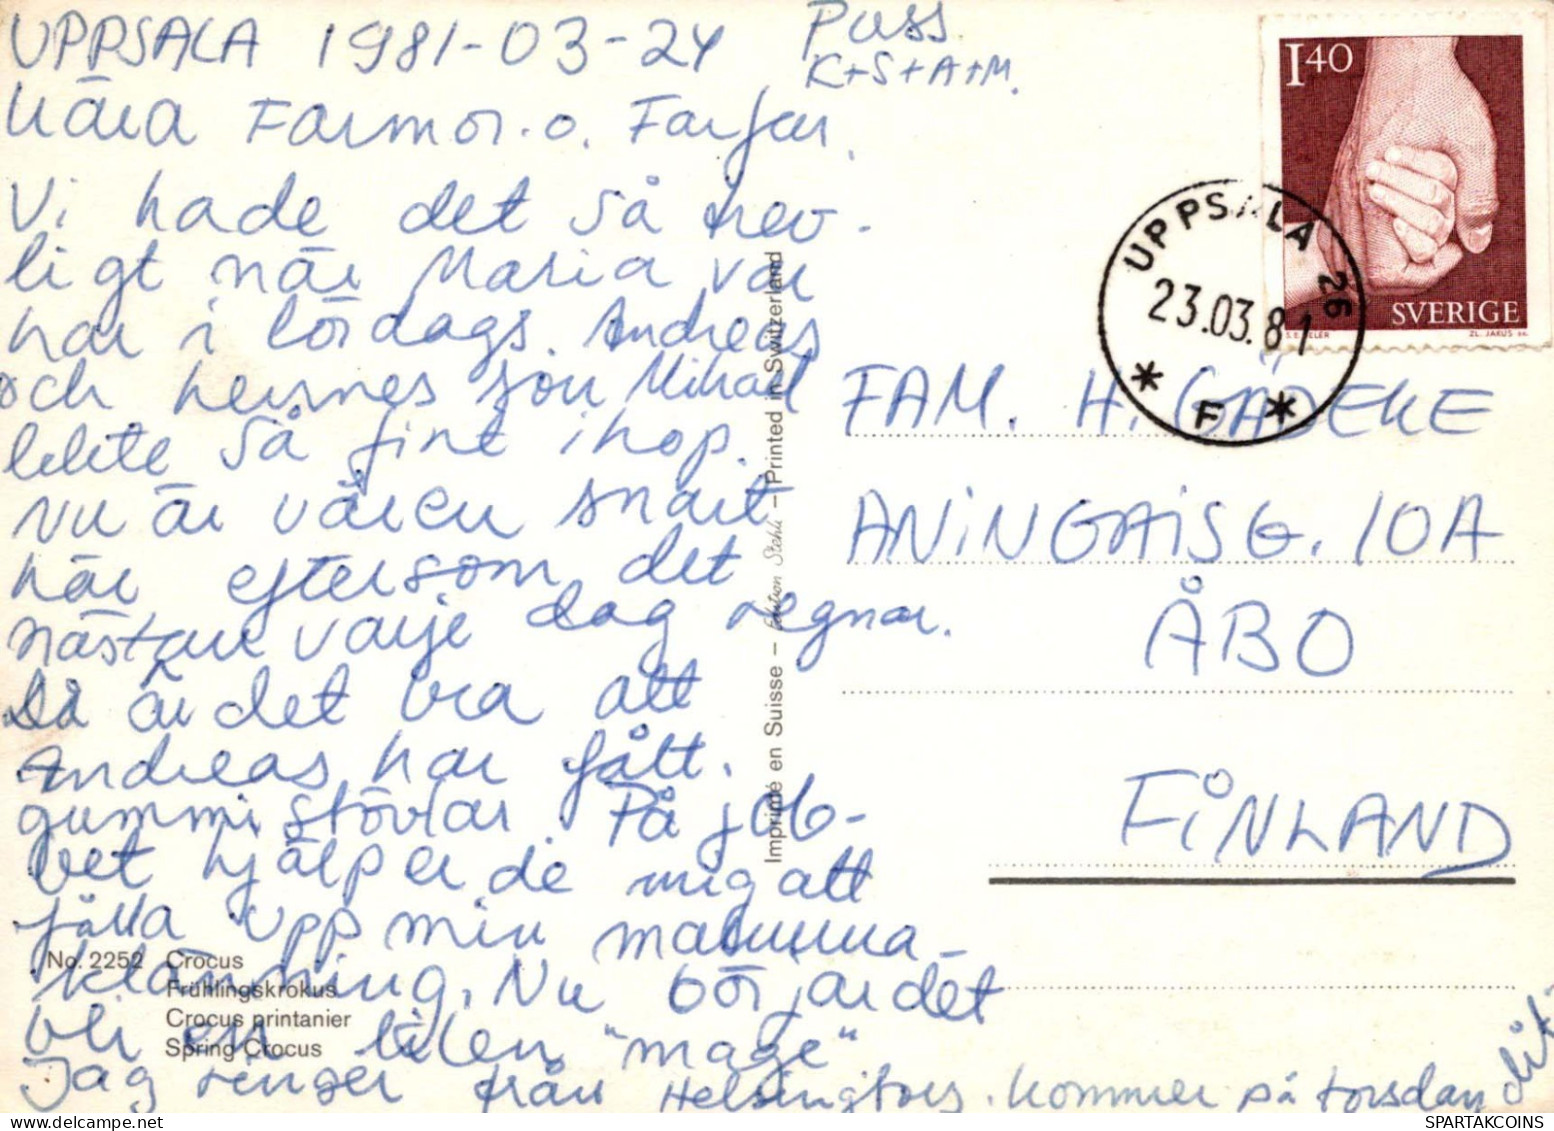 UPPSALA 1981-03-24
Puss
K+S+A+M.
Kära Farmor o. Farfar.
Vi hade det så trev-
ligt när Maria var
här i lördags. Andreas
och hennes son Mikael
lekte så fint ihop.
Nu är våren snart
här eftersom det
nästan varje dag regnar.
Då är det bra att
Andreas har fått
gummistövlar. På job-
bet hjälper de mig att
fålla upp min mamma-
klänning. Nu börjar det
bli en liten "mage"
Jag ringer från Helsingfors. Kommer på torsdag dit.
No. 2252 Crocus
Frühlingskrokus
Crocus printanier
Spring Crocus
Imprimé en Suisse – Edition Stehli – Printed in Switzerland
1 40
SVERIGE
ZL. JAKUS
UPPSALA 26
23.03.81
* F *
FAM. H. GÄDEKE
ANINGAISG. 10A
ÅBO
FINLAND
SPARTAKCOINS